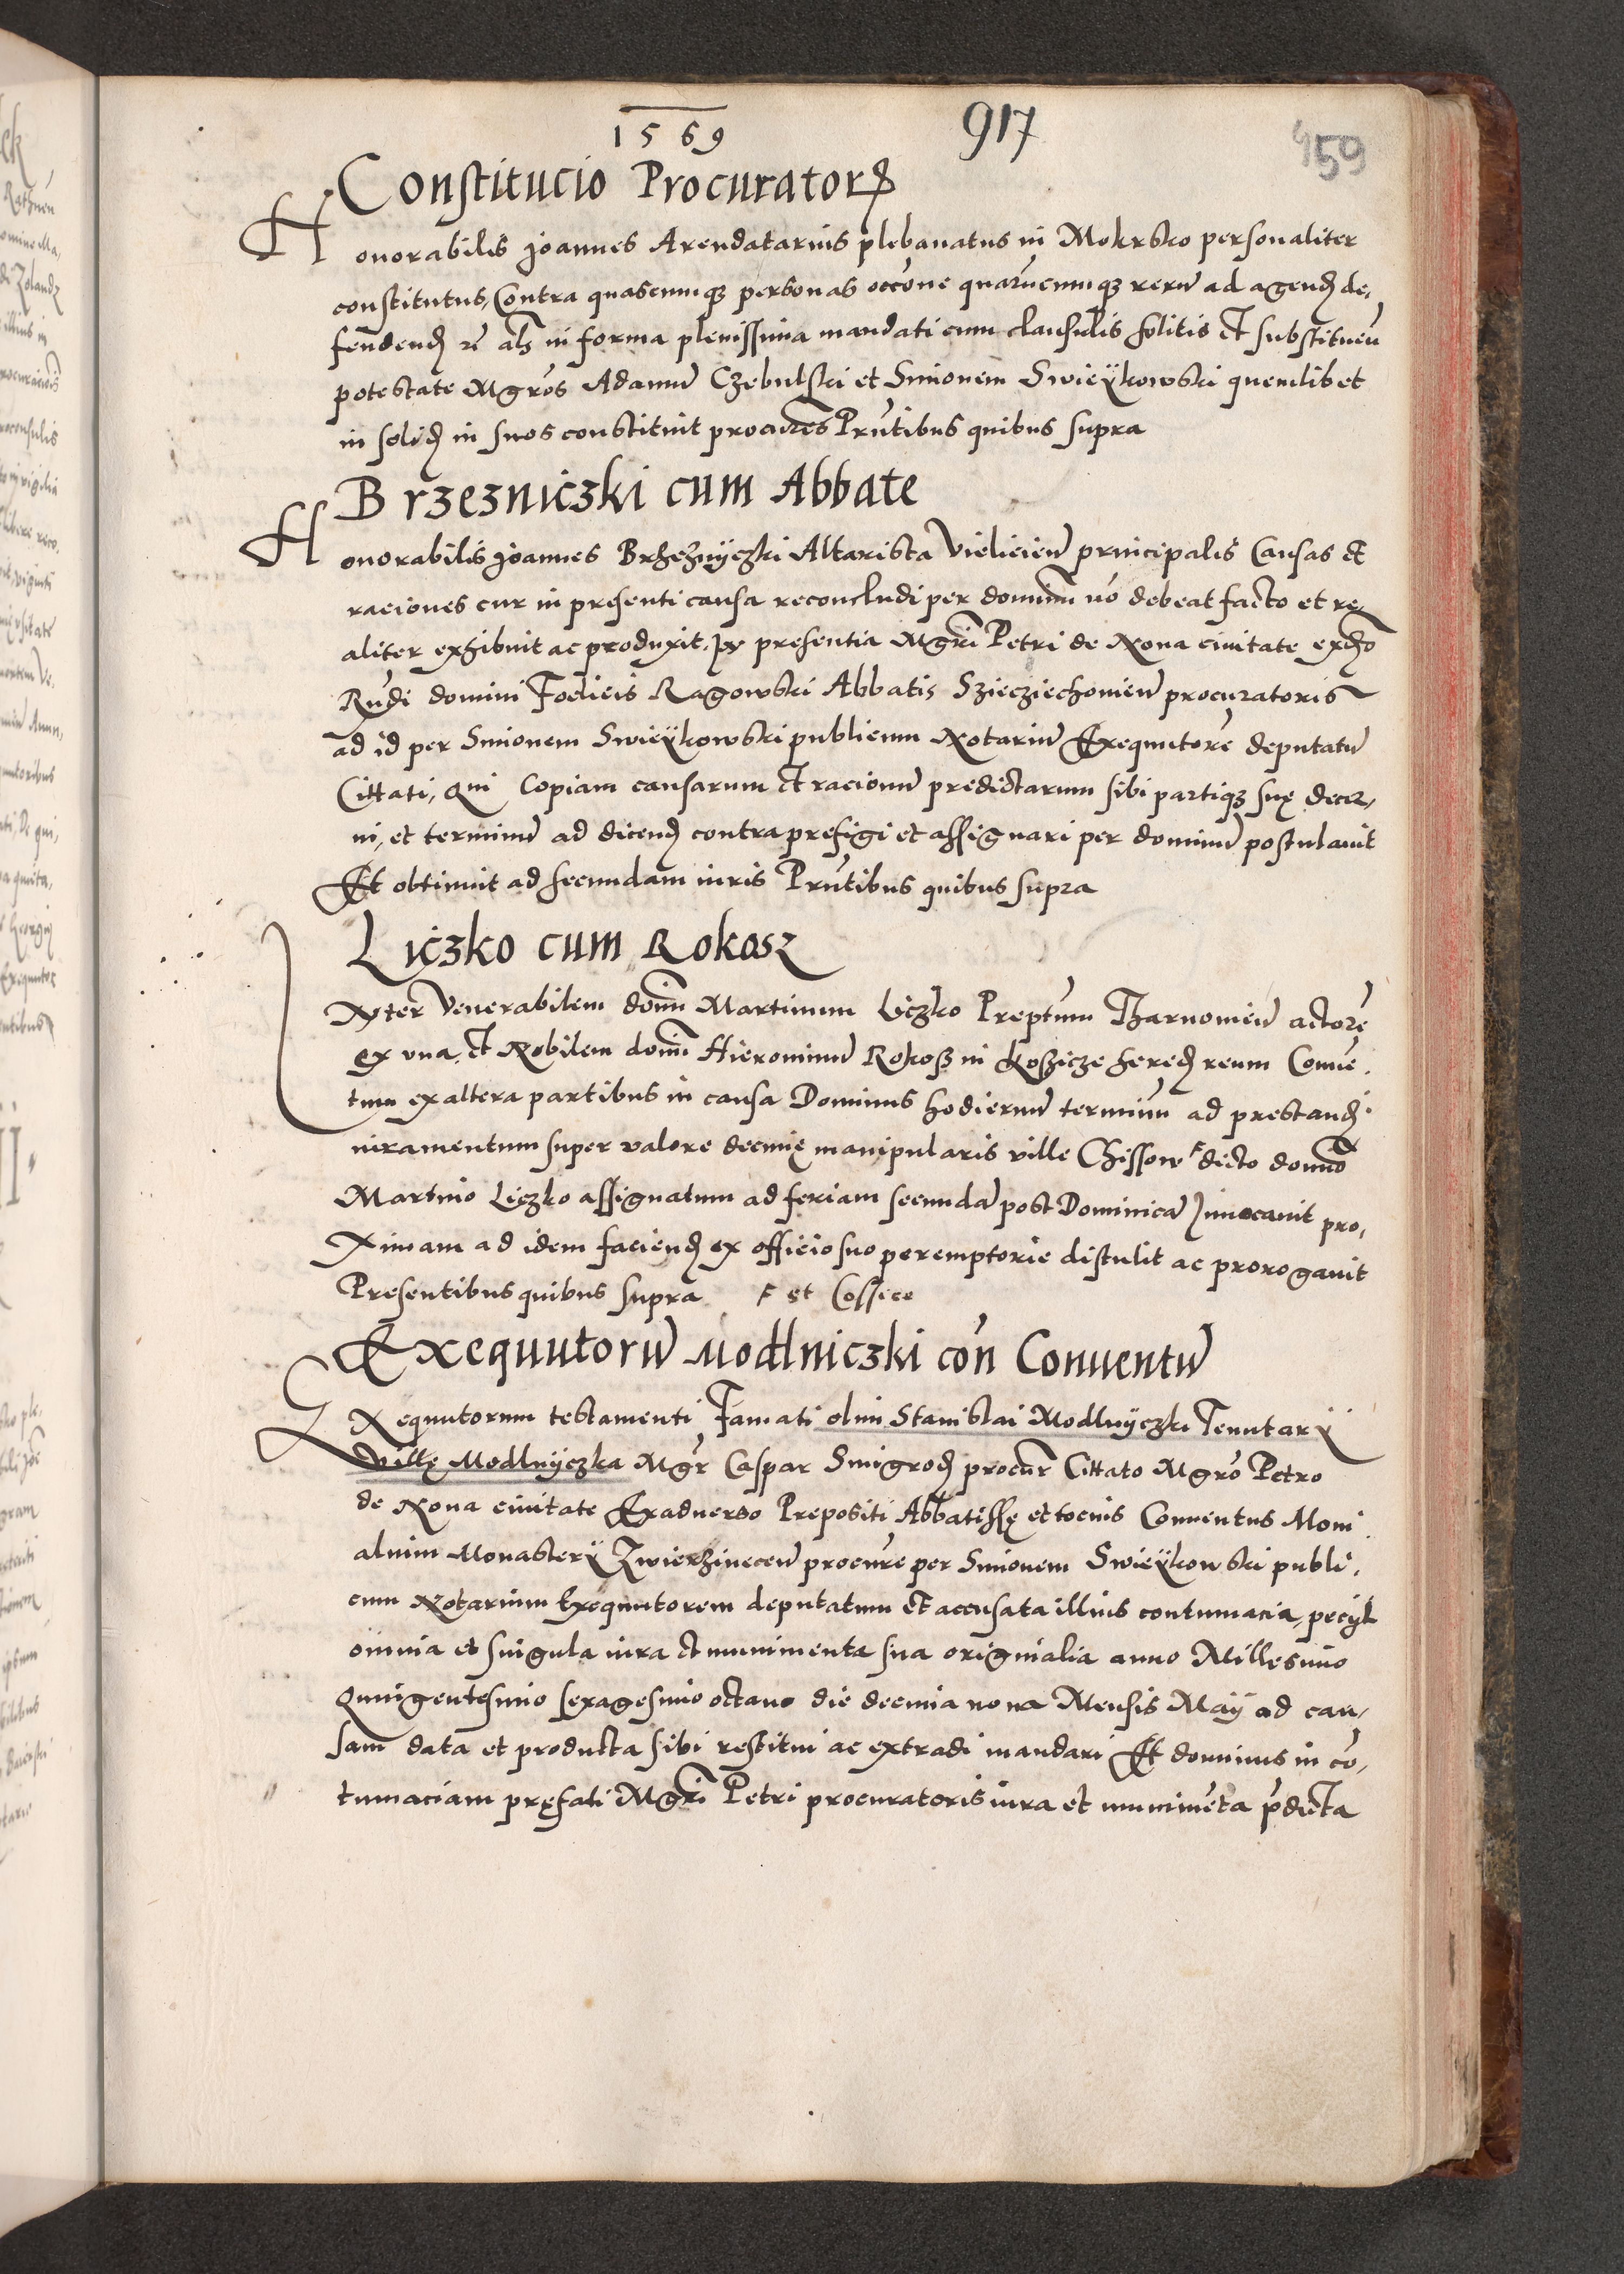 1569 917 459
Constitucio Procurator
Honorabilis Joannes Arendatarius plebanatus in Mokrsko personaliter
constitutus, Contra quascumqꝫ personas occōne quarūcumqꝫ rerū ad agend de,
fendend rē als in forma plenissima mandati cum clausulis solitis et substituēn
potestate Mgrōs Adamū Czebulski et Simonem Swieÿkowski quemlibet
in solid in suos constituit procures Prūtibus quibus supra
Brzezniczki cum Abbate
Honorabilis Joannes Brzeznÿczki Altarista Vielicień principalis Causas et
raciones cur in presenti causa reconcludi per dominum nō debeat facto et re,
aliter exhibuit ac produxit, In presentia Mgri Petri de Nona ciuitate exdō
Rndi domini Foelicis Ragowski Abbatis Sziecziechouień procuratoris
ad id per Simonem Swieÿkowski publicum Notariū Exequutorē deputatū
Cittati, Qui Copiam causarum et racionū predictarum sibi partiqꝫ suę decer,
ni, et terminū ad dicend contra prefigi et assignari per dominū postulauit
Et obtinuit ad secundam iuris Prūtibus quibus supra
Liczko cum Rokosz
Inter Venerabilem dom̄ Martinum Liczko Preptum Tharnouień actorē
ex vna, et Nobilem dom̄ Hieronimū Rokosz in Koszicze hered reum Conue,
tum ex altera partibus in causa Dominus hodiernū terminū ad prestand
iuramentum super valore decimę manipularis ville Chissow ꜰ dicto domino
Martino Liczko assignatum ad feriam secundā post Dominicā Inuocauit pro,
ximam ad idem faciend ex officio suo peremptorie distulit ac prorogauit
Presentibus quibus supra ꜰ et Cossice
Exequutorū Modlniczki cōn Conuentū
Exequutorum testamenti Famati olim Stanislai Modlnÿczki Tenutarÿ
villę Modlnÿczka Mgr Caspar Smigrod procur Cittato Mgrō Petro
de Nona ciuitate Exaduerso Prepositi Abbatissę et tocius Conuentus Moni,
alium Monasterÿ Zwierzinecen procure per Simonem Swieÿkowski publi,
cum Notarium Exequutorem deputatum et accusata illius contumacia, pecÿt
omnia et singula iura et munimenta sua originalia anno Millesimo
Quingentesimo sexagesimo octauo die decima nona Mensis Maÿ ad cau,
sam data et producta sibi restitui ac extradi mandari Et dominus in cō,
tumaciam pręfati Mgri Petri procuratoris iura et munimēta pdicta